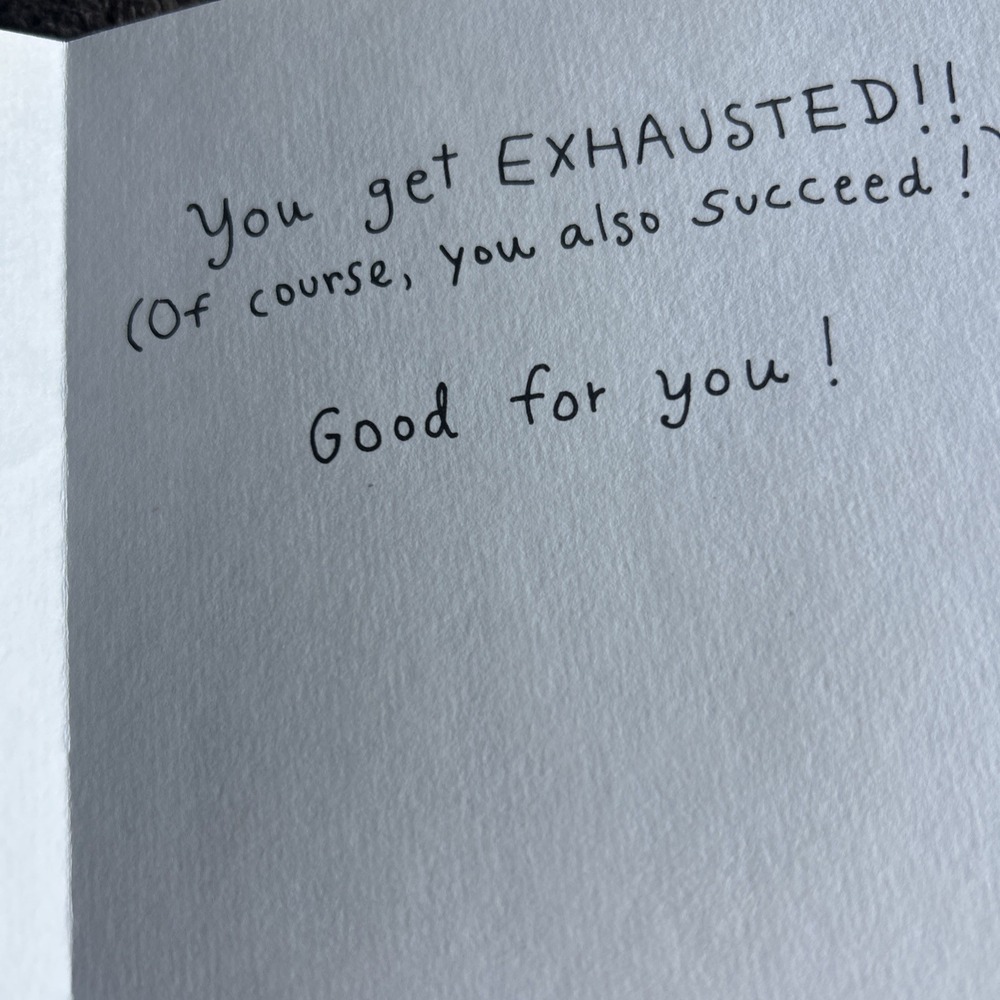 You get EXHAUSTED!!
(Of course, you also succeed!)
Good for you!